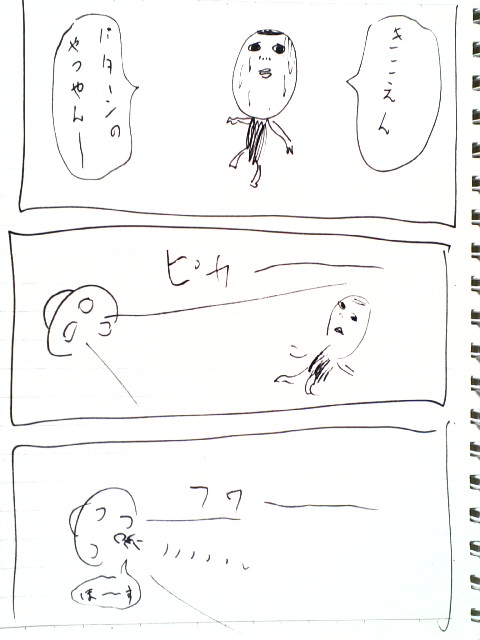 きこえん
パターンの
やつやん――
ピカ――
フワ――
ほーす